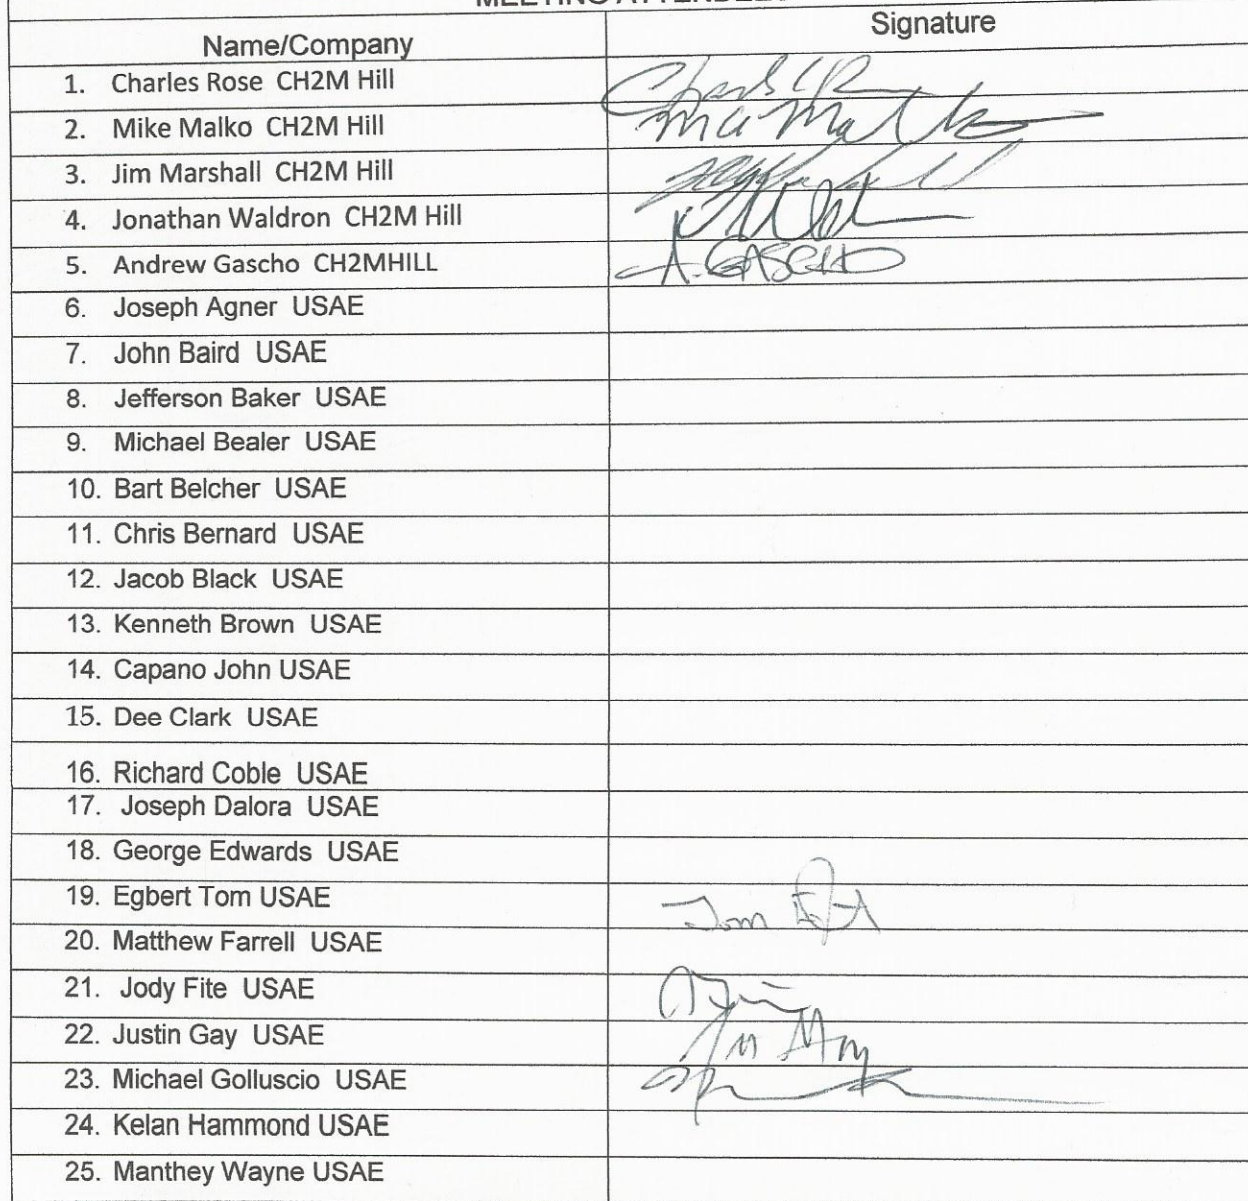 Name/Company Signature
1. Charles Rose CH2M Hill
2. Mike Malko CH2M Hill
3. Jim Marshall CH2M Hill
4. Jonathan Waldron CH2M Hill
5. Andrew Gascho CH2MHILL A. GASCHO
6. Joseph Agner USAE
7. John Baird USAE
8. Jefferson Baker USAE
9. Michael Bealer USAE
10. Bart Belcher USAE
11. Chris Bernard USAE
12. Jacob Black USAE
13. Kenneth Brown USAE
14. Capano John USAE
15. Dee Clark USAE
16. Richard Coble USAE
17. Joseph Dalora USAE
18. George Edwards USAE
19. Egbert Tom USAE Tom
20. Matthew Farrell USAE
21. Jody Fite USAE
22. Justin Gay USAE
23. Michael Golluscio USAE
24. Kelan Hammond USAE
25. Manthey Wayne USAE